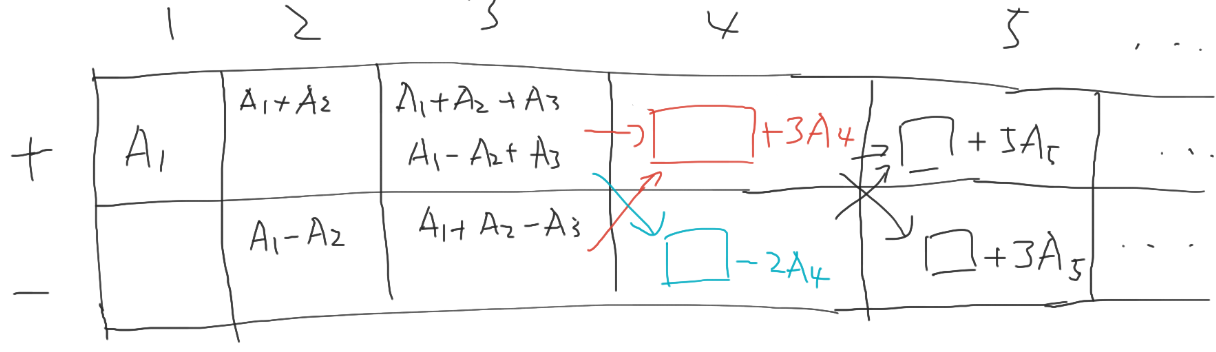 1 2 3 4 5 ...
+ A₁ A₁+A₂ A₁+A₂+A₃ → □+3A₄ → □+5A₅ ...
A₁-A₂+A₃
- A₁-A₂ A₁+A₂-A₃ □-2A₄ □+3A₅ ...